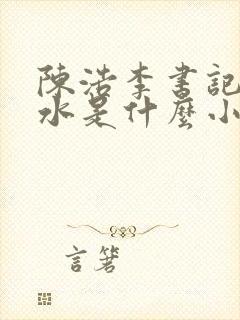 陳浩李書記
水是什麼小
言箸